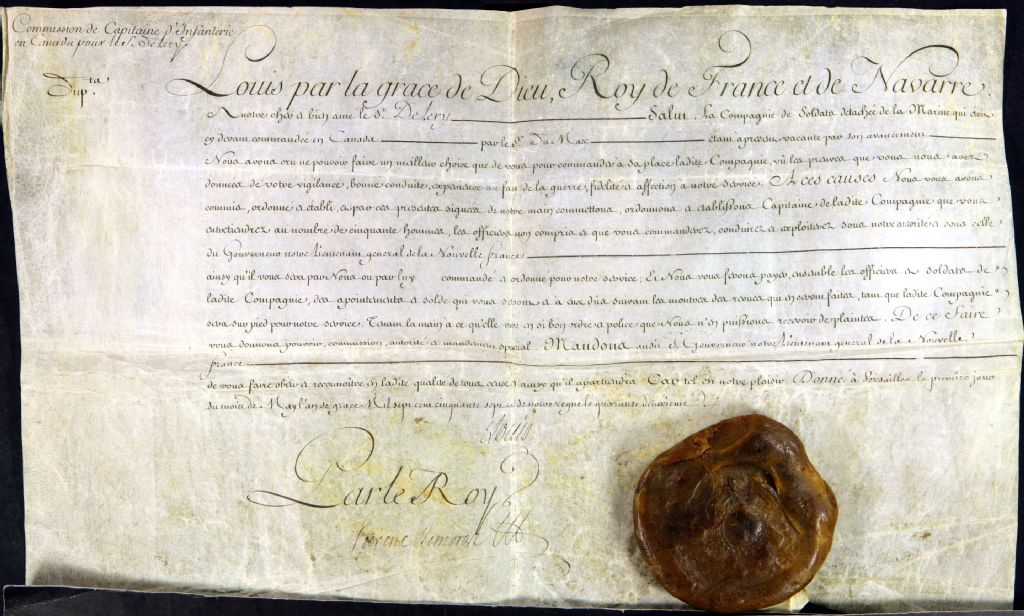 Commission de Capitaine d'Infanterie
en Canada pour le S.r De Lery
Dup.ta
Louis par la grace de Dieu, Roy de France et de Navarre,
A notre cher et bien amé le S.r De Lery Salut. La Compagnie de Soldats détachée de la Marine qui étoit
cy devant commandée en Canada par le S.r Du Mac étant apresent vacante par son avancement
Nous avons cru ne pouvoir faire un meilleur choix que de vous pour commander a sa place ladite Compagnie, vû les preuves que vous nous avez
données de votre vigilance, bonne conduite, experience au fait de la guerre, fidelité et affection a notre service. A ces causes Nous vous avons
commis, ordonné et établi, et par ces presentes signées de notre main commettons, ordonnons et établissons Capitaine de ladite Compagnie que vous
entretiendrez au nombre de cinquante hommes, les officiers non compris et que vous commanderez, conduirez et exploiterez sous notre autorité et sous celle
du Gouverneur notre Lieutenant general de la Nouvelle france
ainsy qu'il vous sera par Nous ou par luy commandé et ordonné pour notre service, Et Nous vous ferons payer, ensemble les officiers et soldats de
ladite Compagnie, des apointements et solde qui vous seront et a eux dûs suivant les montres et reveues qui en seront faites, tant que ladite Compagnie
sera sur pied pour notre service. Tenant la main à ce qu'elle vive en si bon ordre et police que Nous n'en puissions recevoir de plaintes. De ce faire
vous donnons pouvoir, commission, autorité et mandement special. Mandons audit S. Gouverneur notre Lieutenant general de la Nouvelle
france
de vous faire obéir et reconnoitre en ladite qualité de tous ceux et ainsy qu'il apartiendra Car tel est notre plaisir. Donné à Versailles le premier jour
du mois de May l'an de grace Mil sept cent cinquante sept et de notre regne le quarante deuxieme
Louis
Par le Roy